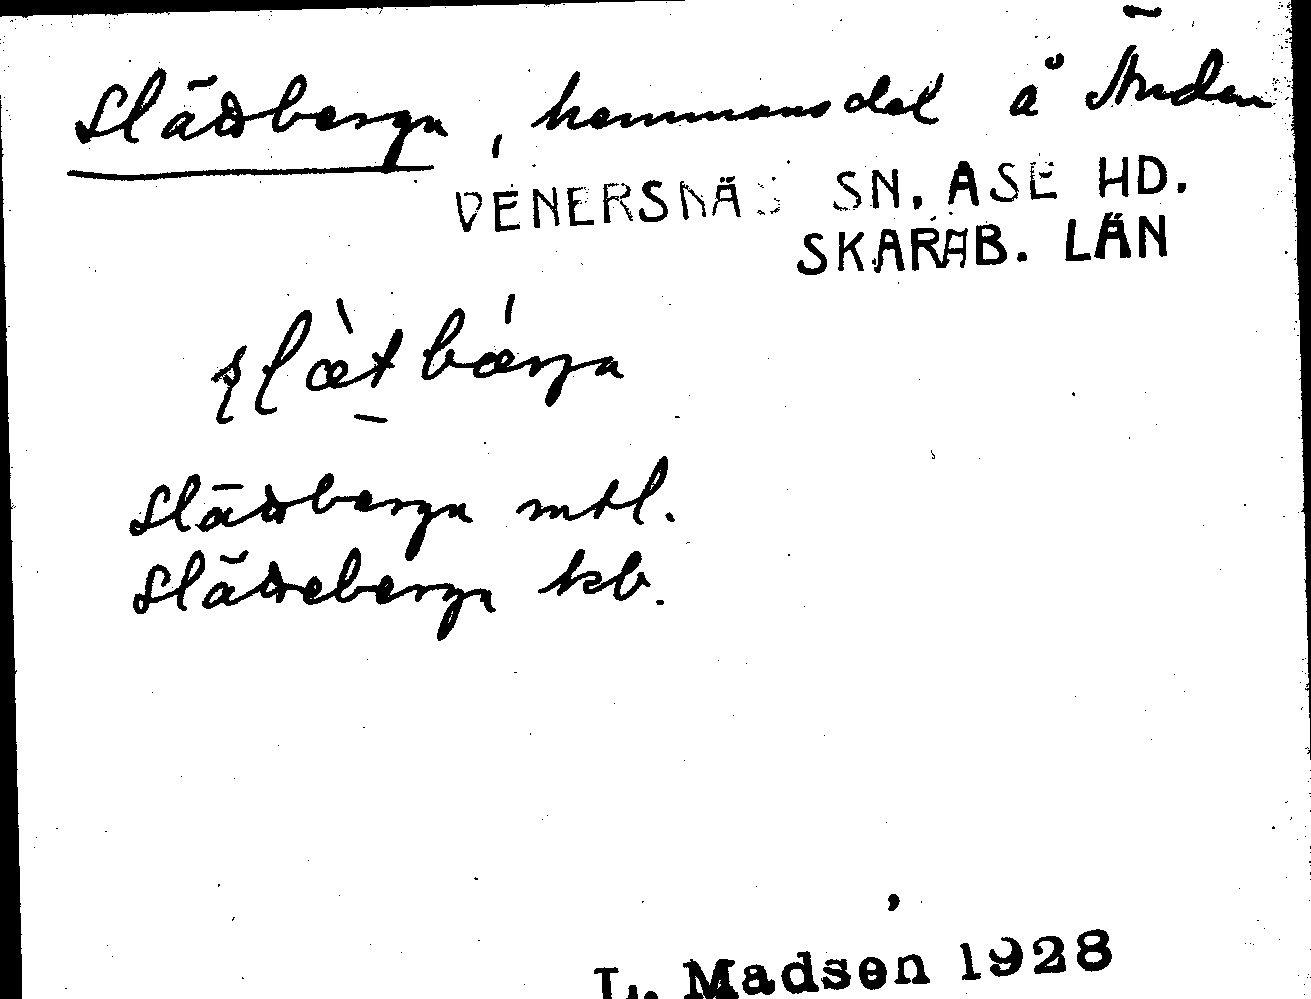 Slättberga, hemmansdel å Änden
VENERSNÄS SN. ÅSE HD.
SKARAB. LÄN
slæ̀t bǽrja
Slättberga mtl.
Slätteberga kb.
L. Madsen 1928